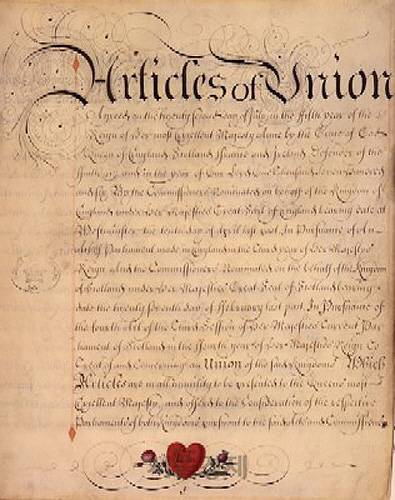 Articles of Union
Agreed on the twenty second day of July in the fifth year of the
Reign of Her most Excellent Majesty Anne by the Grace of God
Queen of England Scotland France and Ireland Defender of the
Faith &c and in the year of Our Lord One thousand Seven hundred
and six By the Commissioners Nominated on behalf of the Kingdom of
England under Her Majesties Great Seal of England bearing date at
Westminster the tenth day of April last past In Pursuance of an
Act of Parliament made in England in the third year of Her Majesties
Reign and the Commissioners Nominated on the behalf of the Kingdom
of Scotland under Her Majesties Great Seal of Scotland bearing
date the twenty seventh day of February last past In Pursuance of
the fourth Act of the third Session of Her Majesties Current Par
liament of Scotland in the fourth year of Her Majesties Reign to
Treat of and Concerning an Union of the said Kingdoms Which
Articles are in all humility to be presented to the Queens most
Excellent Majesty and offered to the Consideration of the respective
Parliaments of both Kingdoms pursuant to the said Acts and Commissions